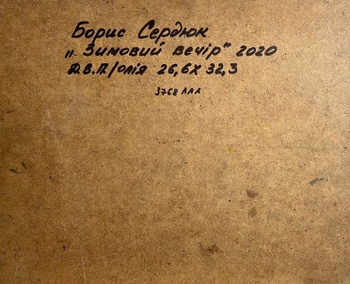 Борис Сердюк
„Зимовий вечір" 2020
Д.В.П./олія 26,6х32,3
3768 ААА